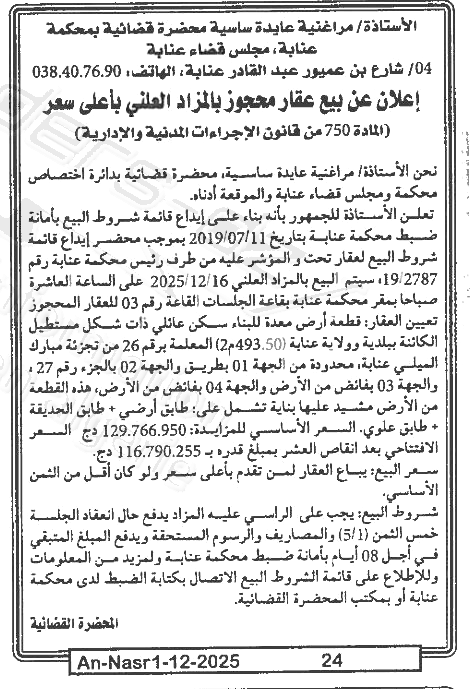 الأستاذة/ مراغنية عايدة ساسية محضرة قضائية بمحكمة
عنابة، مجلس قضاء عنابة
04/ شارع بن عميور عبد القادر عنابة، الهاتف: 038.40.76.90
إعلان عن بيع عقار محجوز بالمزاد العلني بأعلى سعر
(المادة 750 من قانون الإجراءات المدنية والإدارية)
نحن الأستاذة/ مراغنية عايدة ساسية، محضرة قضائية بدائرة اختصاص
محكمة ومجلس قضاء عنابة والموقعة أدناه.
تعلن الأستاذة للجمهور بأنه بناء على إيداع قائمة شروط البيع بأمانة
ضبط محكمة عنابة بتاريخ 2019/07/11 بموجب محضر إيداع قائمة
شروط البيع لعقار تحت و المؤشر عليه من طرف رئيس محكمة عنابة رقم
19/2787: سيتم البيع بالمزاد العلني 2025/12/16 على الساعة العاشرة
صباحا بمقر محكمة عنابة بقاعة الجلسات القاعة رقم 03 للعقار المحجوز
تعيين العقار: قطعة أرض معدة للبناء سكن عائلي ذات شكل مستطيل
الكائنة ببلدية وولاية عنابة (493.50م2) المعلمة برقم 26 من تجزئة مبارك
الميلي عنابة، محدودة من الجهة 01 بطريق والجهة 02 بالجزء رقم 27 ،
والجهة 03 بفائض من الأرض والجهة 04 بفائض من الأرض، هذه القطعة
من الأرض مشيد عليها بناية تشمل على: طابق أرضي + طابق الحديقة
+ طابق علوي. السعر الأساسي للمزايدة: 129.766.950 دج السعر
الافتتاحي بعد انقاص العشر بمبلغ قدره بـ 116.790.255 دج.
سعر البيع: يباع العقار لمن تقدم بأعلى سعر ولو كان أقل من الثمن
الأساسي.
شروط البيع: يجب على الراسي عليه المزاد يدفع حال انعقاد الجلسة
خمس الثمن (5/1) والمصاريف والرسوم المستحقة ويدفع المبلغ المتبقي
في أجل 08 أيام بأمانة ضبط محكمة عنابة ولمزيد من المعلومات
وللإطلاع على قائمة الشروط البيع الاتصال بكتابة الضبط لدى محكمة
عنابة أو بمكتب المحضرة القضائية.
المحضرة القضائية
An-Nasr1-12-2025 24